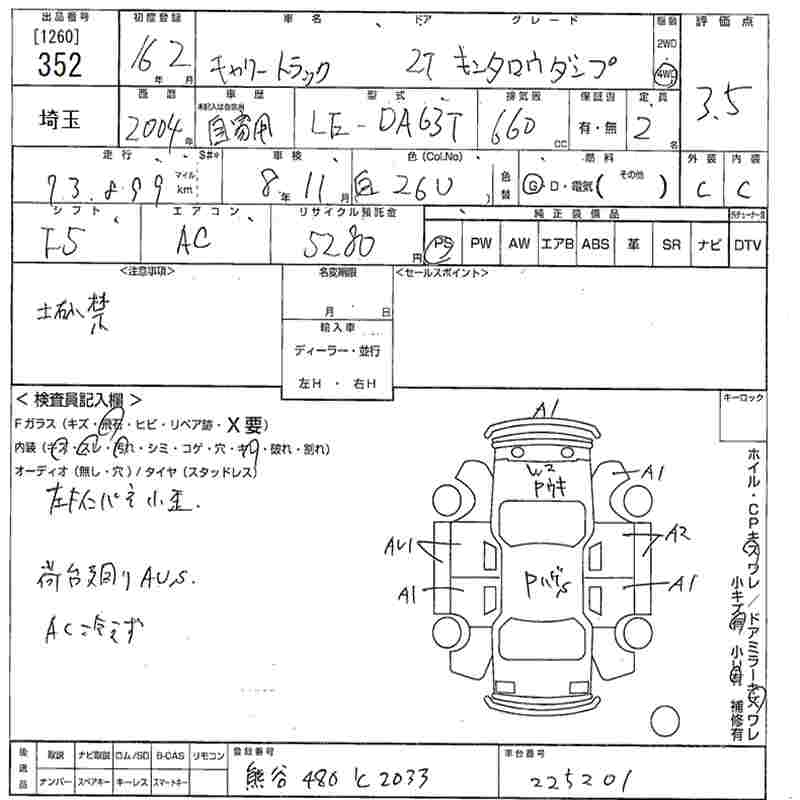 出品番号 初度登録 車名 ドア グレード 駆動 評価点
[1260]
352 16年 2月 キャリートラック 2T キンタロウダンプ 2WD 4WD 3.5
西暦 車歴 型式 排気量 保証書 定員
埼玉 2004年 未記入は自家用 自家用 LE-DA63T 660cc 有・無 2名
走行 S#* 車検 色(Col.No) 色替 燃料 外装 内装
73.899 マイル km 8年 11月 白 26U G・D・電気( その他 ) C C
シフト エアコン リサイクル預託金 純正装備品
F5 AC 5280円 PS PW AW エアB ABS 革 SR ナビ DTV
<注意事項> 名変期限 <セールスポイント>
土砂禁 月 日
輸入車
ディーラー・並行
左H ・ 右H
< 検査員記入欄 > キーロック
Fガラス(キズ・飛石・ヒビ・リペア跡・X要)
内装(キズ・スレ・汚れ・シミ・コゲ・穴・キレ・破れ・割れ)
オーディオ(無し・穴)/タイヤ(スタッドレス)
荷台廻りAU,S.
AC冷えず
A1
W2
Pウキ
A1
AU1
A2
PハゲS
A1
A1
ホイル・CPキズワレ/ドアミラーキズワレ
小キズ有 小凹有 補修有
後送品 取説 ナビ取説 ロム/SD B-CAS リモコン 登録番号 車台番号
ナンバー スペアキー キーレス スマートキー 熊谷 480 ヒ 2033 225201